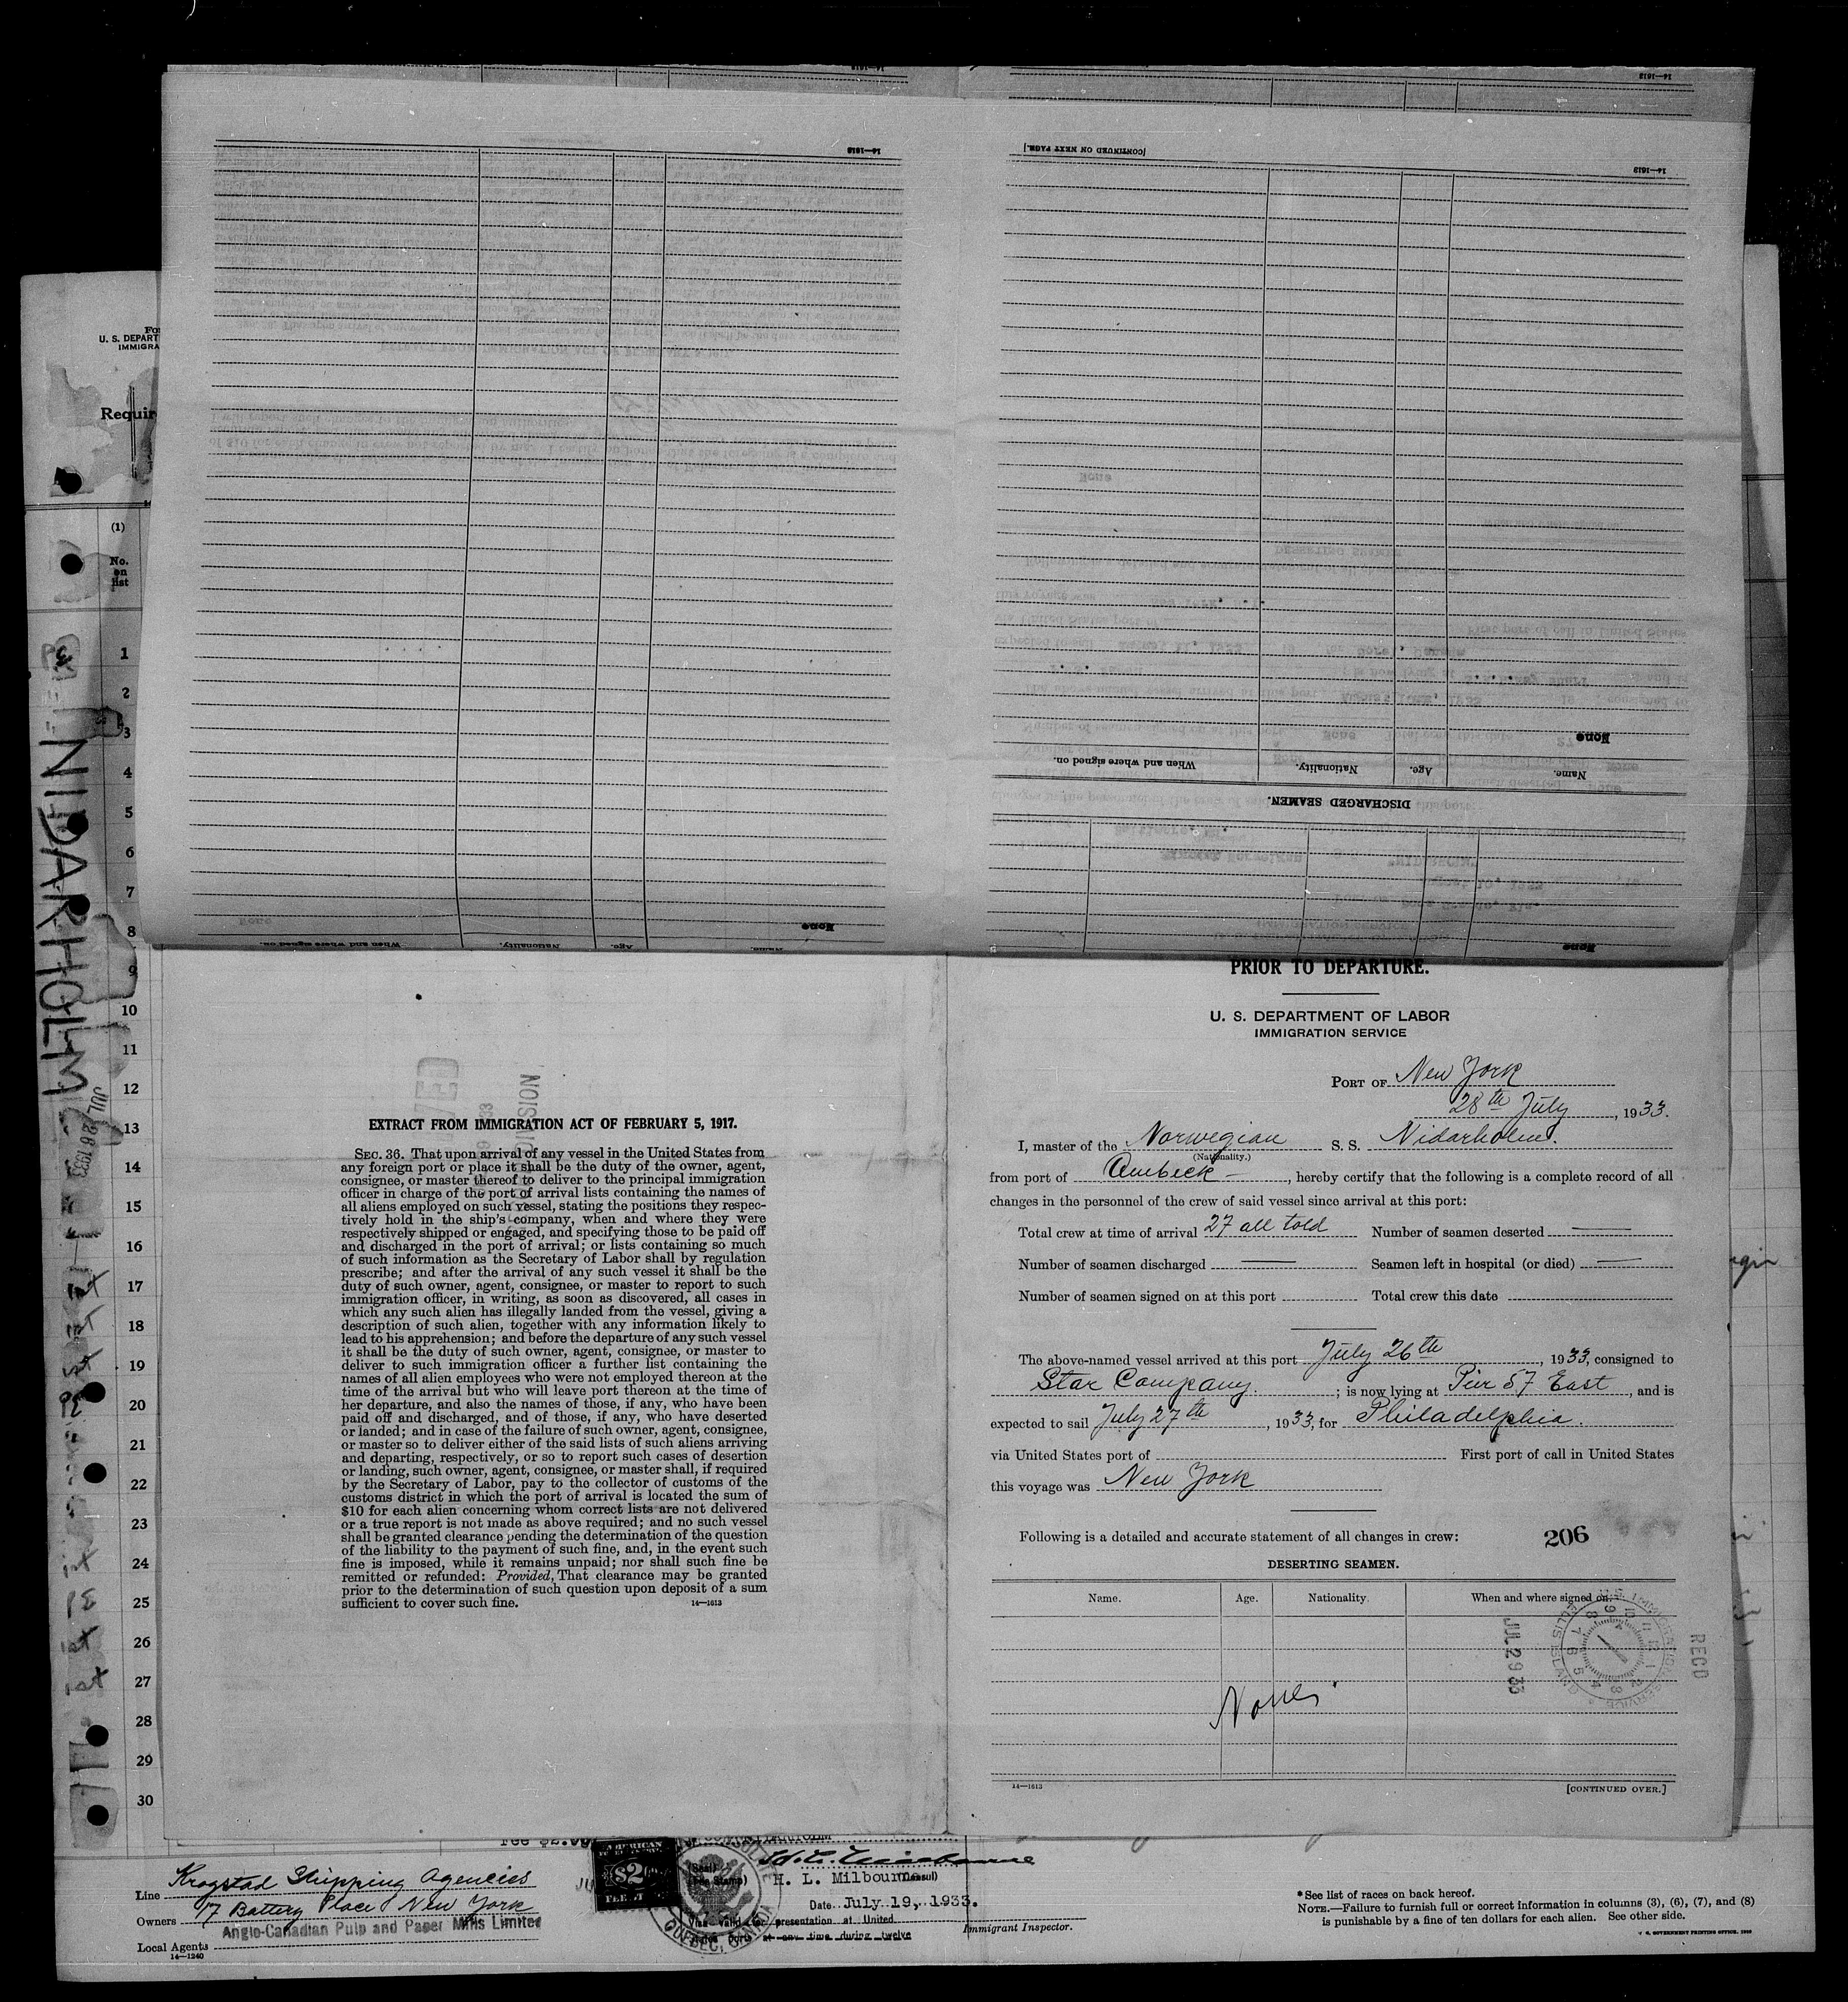 14—1613
14—1613
14—1613
[CONTINUED ON NEXT PAGE.]
14—1613
None
Name. Age. Nationality. When and where signed on.
DISCHARGED SEAMEN.
None
None
Name. Age. Nationality. When and where signed on.
U. S. DEPART
IMMIGRA
Requir
(1)
No. on list
1
2
3
4
5
6
7
8
9
10
11
12
13
14
15
16
17
18
19
20
21
22
23
24
25
26
27
28
29
30
NIDARHOLM
JUL 26 1933
EXTRACT FROM IMMIGRATION ACT OF FEBRUARY 5, 1917.
SEC. 36. That upon arrival of any vessel in the United States from
any foreign port or place it shall be the duty of the owner, agent,
consignee, or master thereof to deliver to the principal immigration
officer in charge of the port of arrival lists containing the names of
all aliens employed on such vessel, stating the positions they respec-
tively hold in the ship's company, when and where they were
respectively shipped or engaged, and specifying those to be paid off
and discharged in the port of arrival; or lists containing so much
of such information as the Secretary of Labor shall by regulation
prescribe; and after the arrival of any such vessel it shall be the
duty of such owner, agent, consignee, or master to report to such
immigration officer, in writing, as soon as discovered, all cases in
which any such alien has illegally landed from the vessel, giving a
description of such alien, together with any information likely to
lead to his apprehension; and before the departure of any such vessel
it shall be the duty of such owner, agent, consignee, or master to
deliver to such immigration officer a further list containing the
names of all alien employees who were not employed thereon at the
time of the arrival but who will leave port thereon at the time of
her departure, and also the names of those, if any, who have been
paid off and discharged, and of those, if any, who have deserted
or landed; and in case of the failure of such owner, agent, consignee,
or master so to deliver either of the said lists of such aliens arriving
and departing, respectively, or so to report such cases of desertion
or landing, such owner, agent, consignee, or master shall, if required
by the Secretary of Labor, pay to the collector of customs of the
customs district in which the port of arrival is located the sum of
$10 for each alien concerning whom correct lists are not delivered
or a true report is not made as above required; and no such vessel
shall be granted clearance pending the determination of the question
of the liability to the payment of such fine, and, in the event such
fine is imposed, while it remains unpaid; nor shall such fine be
remitted or refunded: Provided, That clearance may be granted
prior to the determination of such question upon deposit of a sum
sufficient to cover such fine. 14—1613
PRIOR TO DEPARTURE.
U. S. DEPARTMENT OF LABOR
IMMIGRATION SERVICE
PORT OF New York
28th July, 1933.
I, master of the Norwegian S. S. Nidarholm.
(Nationality.)
from port of Quebeck —, hereby certify that the following is a complete record of all
changes in the personnel of the crew of said vessel since arrival at this port:
Total crew at time of arrival 27 all told Number of seamen deserted —
Number of seamen discharged — Seamen left in hospital (or died) —
Number of seamen signed on at this port Total crew this date
The above-named vessel arrived at this port July 26th, 1933, consigned to
Star Company.; is now lying at Pier 57 East, and is
expected to sail July 27th, 1933, for Philadelphia.
via United States port of First port of call in United States
this voyage was New York
Following is a detailed and accurate statement of all changes in crew:
206
DESERTING SEAMEN.
Name. Age. Nationality. When and where signed on.
U. S. IMMIGRATION SERVICE ELLIS ISLAND
JUL 29 33
RECD
None
14—1613 [CONTINUED OVER.]
Line Krogstad Shipping Agencies
Owners 17 Battery Place New York
Anglo-Canadian Pulp and Paper Mills Limited
Local Agents
14—1240
Fee $2.00
AMERICAN
$2
H. L. Milbourne
(Consul)
Date July 19, 1933.
Visa valid for presentation at United
States ports at any time during twelve
QUEBEC, CANADA
Immigrant Inspector.
*See list of races on back hereof.
NOTE.—Failure to furnish full or correct information in columns (3), (6), (7), and (8)
is punishable by a fine of ten dollars for each alien. See other side.
U. S. GOVERNMENT PRINTING OFFICE